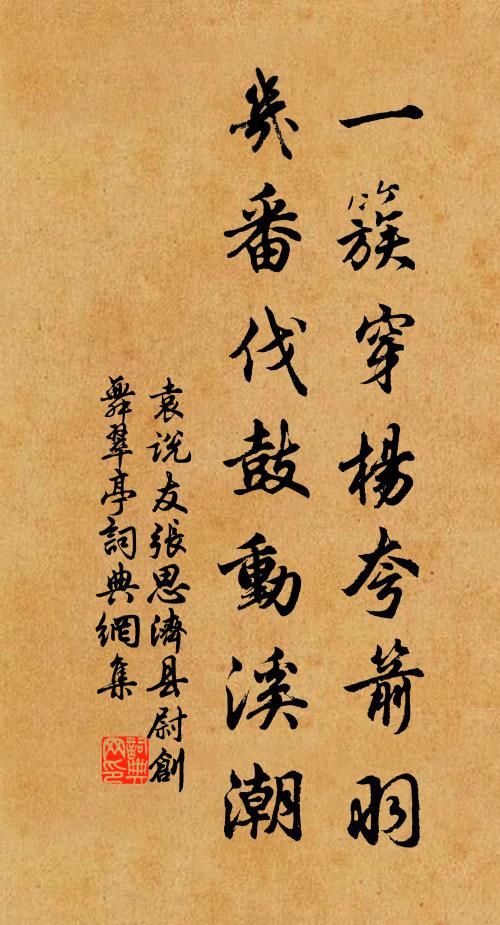 一簇穿楊夸箭羽
幾番伐鼓動溪潮
袁説友張思濟县尉創
舞翠亭詞典網集
詞典
网印